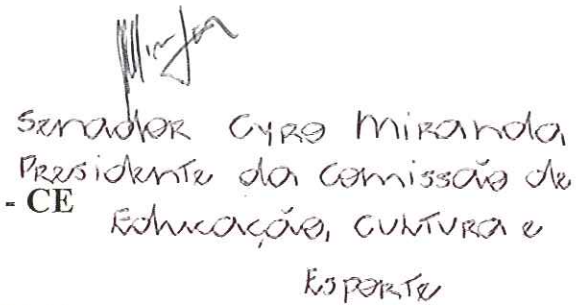 Senador Cyro Miranda
Presidente da Comissão de
- CE
Educação, Cultura e
Esporte